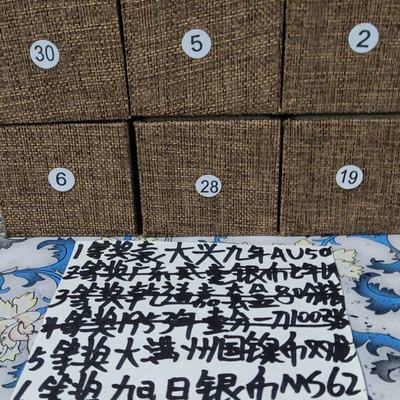 30 5 2
6 28 19
1等奖袁大头九年AU50
2等奖广东壹毫银币七年
3等奖乾隆 套盒80分
4等奖1953年壹分一刀100张
5等奖大满州国镍币双龙
银币MS62